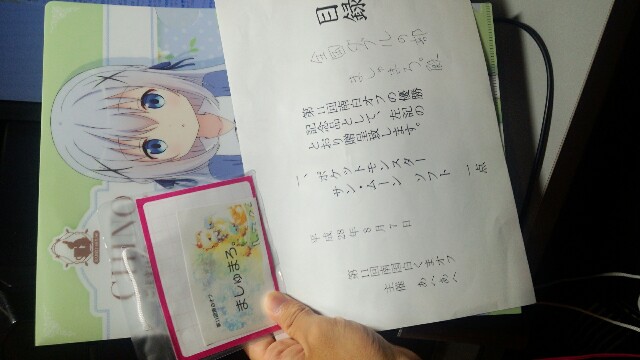 目録
全国ダブルの部
ましゅまろ。殿
第11回南国オフの優勝
記念品として、左記の
とおり贈呈致します。
一、ポケットモンスター
サン・ムーン ソフト 一点
平成28年8月7日
第11回南国白くまオフ
主催 あぺあぺ
CHINO
ましゅまろ。